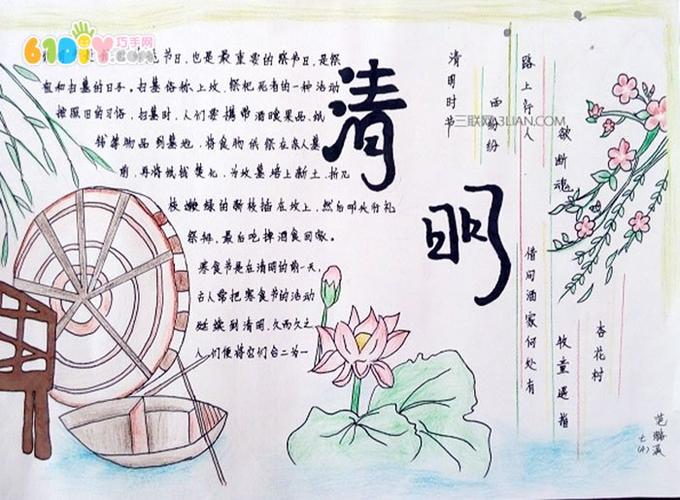 61DIY巧手网
.com
节日,也是最重要的祭节日,是祭
祖和扫墓的日子。扫墓俗称上坟,祭祀死者的一种活动
按照旧的习俗,扫墓时,人们要携带酒食果品、纸
钱等物品到墓地,将食物供祭在亲人墓
前,再将纸钱焚化,为坟墓培上新土,折几
枝嫩绿的新枝插在坟上,然后叩头行礼
祭拜,最后吃掉酒食回家。
寒食节是在清明的前一天,
古人常把寒食节的活动
延续到清明,久而久之
人们便将它们合二为一
清明
清明时节
雨纷纷
路上行人
欲断魂
借问酒家何处有
牧童遥指
杏花村
三联网3LIAN.COM
范
七